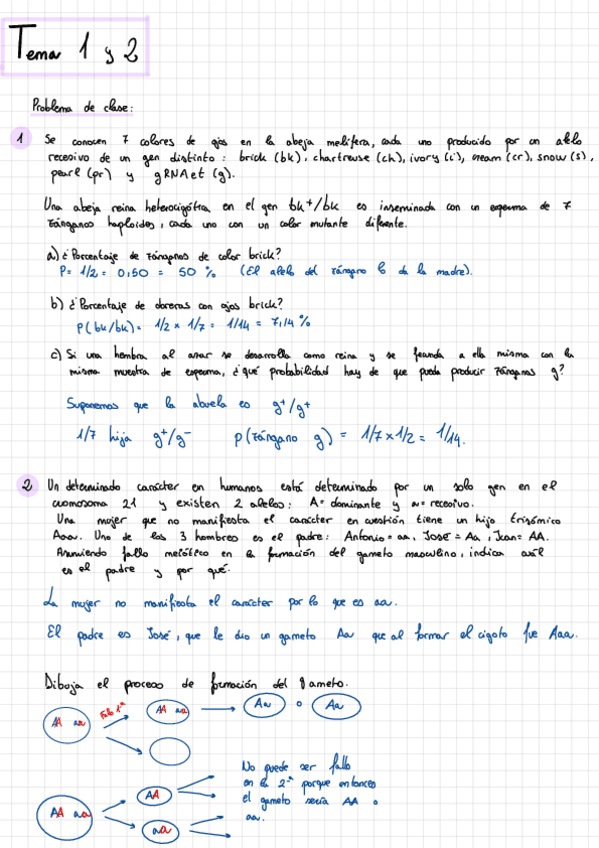 Tema 1 y 2
Problema de clase:
1 Se conocen 7 colores de ojos en la abeja melífera, cada uno producido por un alelo
recesivo de un gen distinto: brick (bk), chartreuse (ch), ivory (i), cream (cr), snow (s),
pearl (pr) y gRNAet (g).
Una abeja reina heterocigótica en el gen bk+/bk es inseminada con un esperma de 7
zánganos haploides, cada uno con un color mutante diferente.
a) ¿Porcentaje de zánganos de color brick?
P= 1/2 = 0,50 = 50 % (El alelo del zángano lo da la madre).
b) ¿Porcentaje de obreras con ojos brick?
P(bk/bk)= 1/2 x 1/7 = 1/14 = 7,14 %
c) Si una hembra al azar se desarrolla como reina y se fecunda a ella misma con la
misma muestra de esperma, ¿qué probabilidad hay de que pueda producir zánganos g?
Suponemos que la abuela es g+/g+
1/7 hija g+/g- p(zángano g) = 1/7 x 1/2 = 1/14.
2 Un determinado carácter en humanos está determinado por un solo gen en el
cromosoma 21 y existen 2 alelos: A= dominante y a= recesivo.
Una mujer que no manifiesta el carácter en cuestión tiene un hijo trisómico
Aaa. Uno de los 3 hombres es el padre: Antonio = aa, José = Aa, Juan= AA.
Asumiendo fallo meiótico en la formación del gameto masculino, indica cuál
es el padre y por qué.
La mujer no manifiesta el carácter por lo que es aa.
El padre es José, que le dio un gameto Aa que al formar el cigoto fue Aaa.
Dibuja el proceso de formación del gameto.
AA aa Fallo 1ª AA aa Aa o Aa
No puede ser fallo
en la 2ª porque entonces
el gameto sería AA o
aa.
AA aa AA
aa